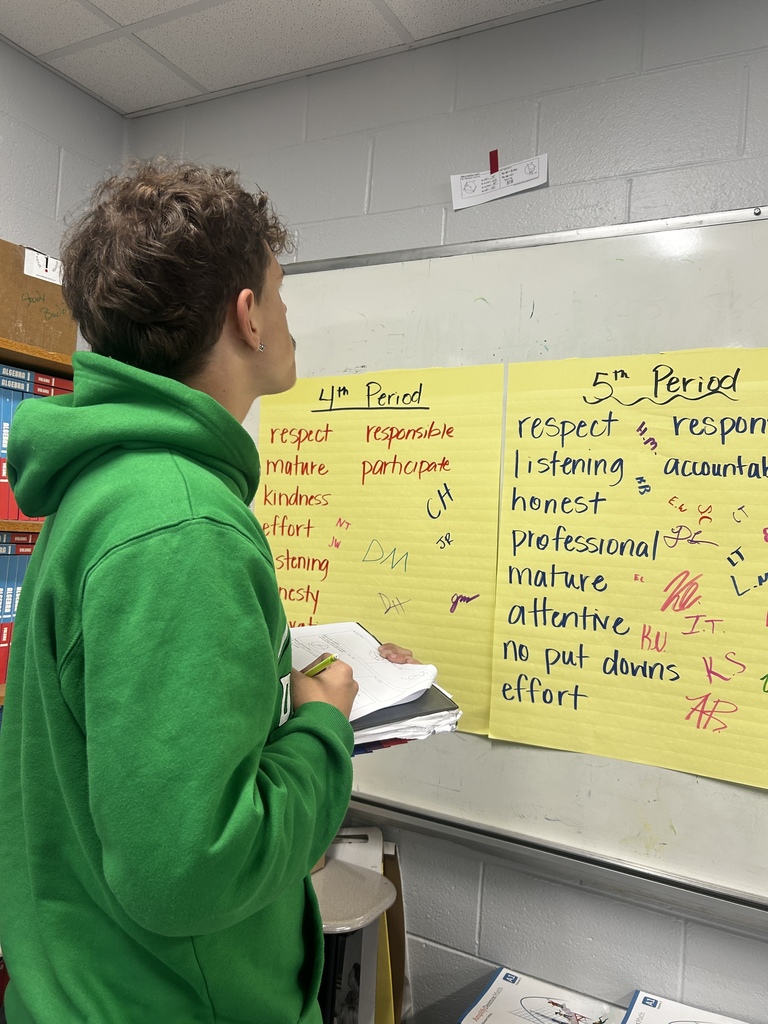 4th Period
respect responsible
mature participate
kindness
effort NT
JW
stening
nesty
CH
JR
DM
DH
5th Period
respect H.M. respon
listening accountab
KB
honest
professional
mature
attentive
no put downs
effort
E.W
LT
L.M
K.U. I.T.
KS
AB
ALGEBRA 1
ALGEBRA
ALGEBRA
A1
A1